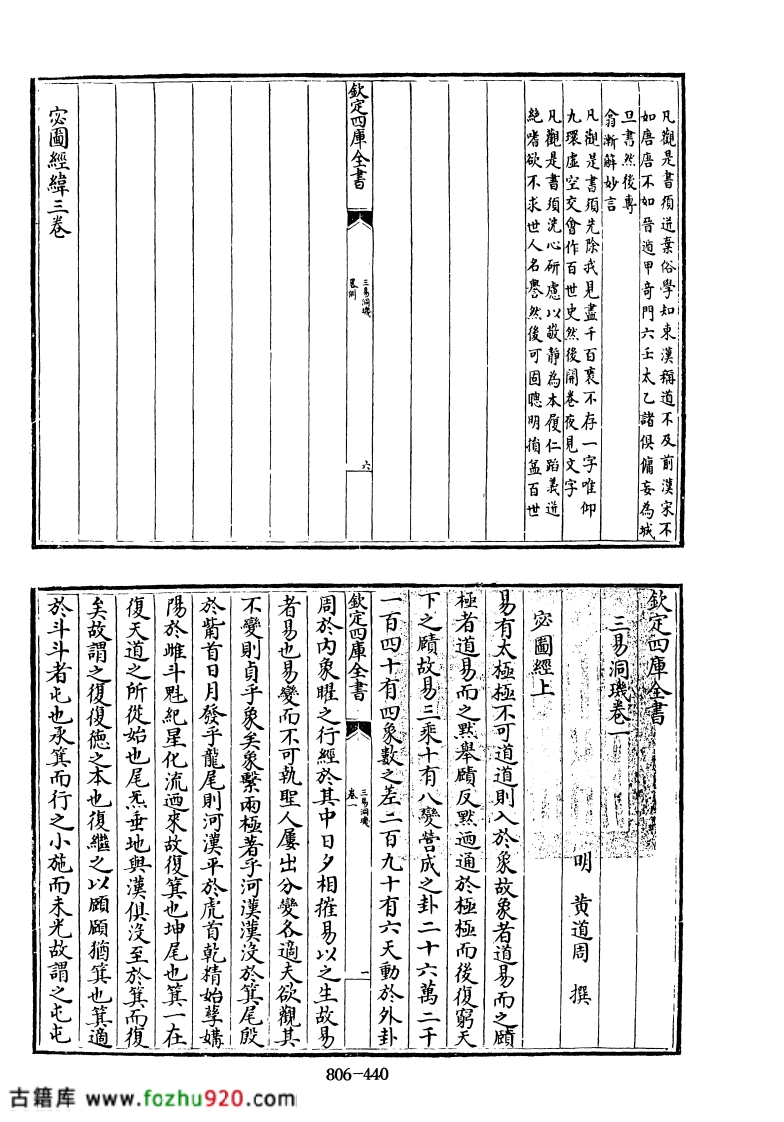 凡觀是書須迸棄俗學知東漢稱道不及前漢宋不
如唐唐不如晉遁甲奇門六壬太乙諸俱傭妄為城
旦書然後專
翕漸解妙言
凡觀是書須先除我見盡千百裏不存一字唯仰
九環虛空交會作百世史然後開卷夜見文字
凡觀是書須洗心研慮以敬靜為本履仁蹈義迸
絶嗜欲不求世人名譽然後可固聰明損益百世
欽定四庫全書
三易洞璣
畧例
六
宓圖經緯三卷
欽定四庫全書
三易洞璣卷一
明 黄道周 撰
宓圖經上
易有太極極不可道道則入於象故象者道易而之賾
極者道易而之黙舉賾反黙迺通於極極而後復窮天
下之賾故易三乘十有八變營成之卦二十六萬二千
一百四十有四象數之差二百九十有六天動於外卦
周於内象曜之行經於其中日夕相摧易以之生故易
欽定四庫全書
三易洞璣
卷一
一
者易也易變而不可執聖人屢出分變各適夫欲觀其
不變則貞乎象矣象繫兩極著乎河漢漢没於箕尾殷
於觜首日月發乎龍尾則河漢平於虎首乾精始孳媾
陽於雌斗魁紀星化流迺來故復箕也坤尾也箕一在
復天道之所從始也尾炁垂地與漢俱没至於箕而復
矣故謂之復復德之本也復繼之以頤頤猶箕也箕適
於斗斗者屯也承箕而行之小施而未光故謂之屯屯
806-440
古籍库 www.fozhu920.com